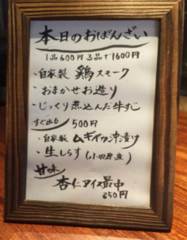 本日のおばんざい
1品600円 3品で1600円
・自家製 鶏スモーク
・おまかせお造り
・じっくり煮込んだ牛すじ
すぐ出る 500円
・自家製 ムギイカ沖漬り
・生しらす
甘味
杏仁アイス最中
650円